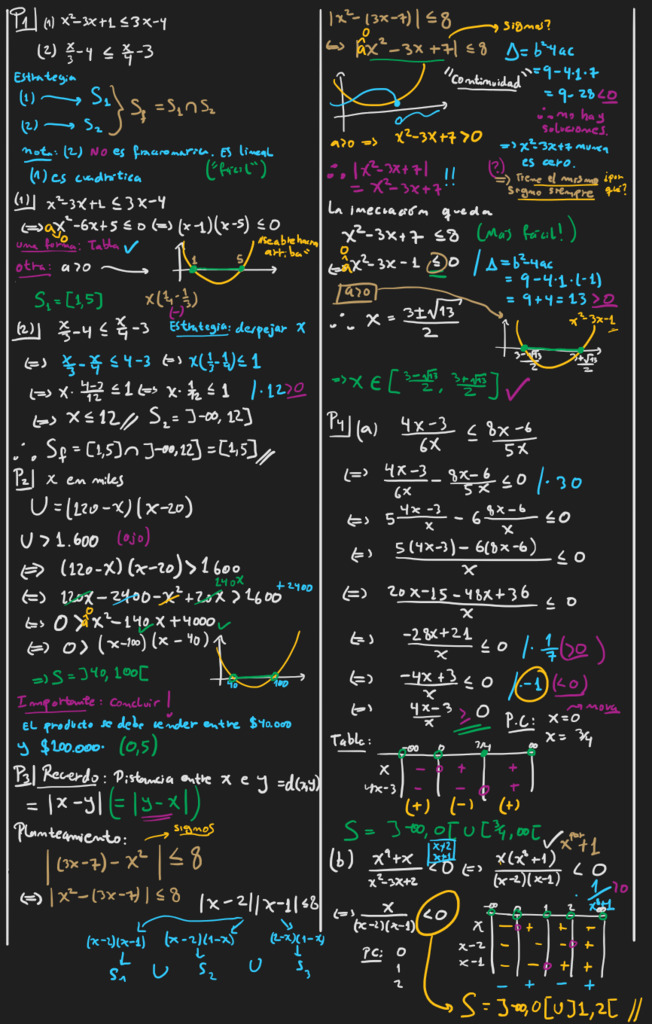 P1| (1) x²-3x+1 ≤ 3x-4
(2) x/3 -4 ≤ x/4 -3
Estrategia
(1) → S₁
(2) → S₂
} S_f = S₁ ∩ S₂
nota: (2) NO es fraccionaria. Es lineal
("fácil")
(1) es cuadrática
(1)| x²-3x+1 ≤ 3x-4
⟺ x²-6x+5 ≤ 0 ⟺ (x-1)(x-5) ≤ 0
a>0
una forma: Tabla ✓
otra: a>0 →
1 5
se abre hacia arriba
S₁ = [1,5]
x(1/4 - 1/3)
(-)
(2)| x/3 -4 ≤ x/4 -3 Estrategia: despejar x
⟺ x/3 - x/4 ≤ 4-3 ⟺ x(1/3 - 1/4) ≤ 1
⟺ x · (4-3)/12 ≤ 1 ⟺ x · 1/12 ≤ 1 /·12>0
⟺ x ≤ 12 // S₂ = ]-∞, 12]
∴ S_f = [1,5] ∩ ]-∞,12] = [1,5] //
P2| x en miles
U = (120-x)(x-20)
U > 1.600 (ojo)
⟺ (120-x)(x-20) > 1600
140x
⟺ 120x - 2400 - x² + 20x > 1600 +2400
⟺ 0 > x² - 140x + 4000 ✓
⟺ 0 > (x-100)(x-40)
⟹ S = ]40, 100[
40 100
Importante: concluir!
El producto se debe vender entre $40.000
y $100.000. (0,5)
P3| Recuerdo: Distancia entre x e y = d(x,y)
= |x-y| (= |y-x|)
Planteamiento: → signos
|(3x-7) - x²| ≤ 8
⟺ |x² - (3x-7)| ≤ 8
|x-2||x-1| ≤ 8
(x-2)(x-1) (x-2)(1-x) (2-x)(1-x)
S₁ ∪ S₂ ∪ S₃
|x² - (3x-7)| ≤ 8 → signos?
⟺ |x² - 3x + 7| ≤ 8 Δ = b²-4ac
= 9-4·1·7
= 9-28 <0
"Continuidad"
∴ no hay soluciones.
a>0 ⟹ x²-3x+7 > 0
⟹ x²-3x+7 nunca es cero.
∴ |x²-3x+7| = x²-3x+7 !!
(?) ⟹ Tiene el mismo signo siempre ¿por qué?
la inecuación queda
x²-3x+7 ≤ 8 (Más fácil!)
⟺ x²-3x-1 ≤ 0 / Δ = b²-4ac
= 9-4·1·(-1)
= 9+4 = 13 >0
a>0
∴ x = (3±√13)/2
x²-3x-1
(3-√13)/2 (3+√13)/2
⟹ x ∈ [(3-√13)/2, (3+√13)/2] ✓
P4| (a) (4x-3)/6x ≤ (8x-6)/5x
⟺ (4x-3)/6x - (8x-6)/5x ≤ 0 /·30
⟺ 5 (4x-3)/x - 6 (8x-6)/x ≤ 0
⟺ (5(4x-3) - 6(8x-6))/x ≤ 0
⟺ (20x-15-48x+36)/x ≤ 0
⟺ (-28x+21)/x ≤ 0 /·1/7 (>0)
⟺ (-4x+3)/x ≤ 0 /·-1 (<0)
⟺ (4x-3)/x ≥ 0 P.C: x=0
x=3/4
Tabla: -∞ 0 3/4 ∞
x - + +
4x-3 - - +
(+) (-) (+)
S = ]-∞,0[ ∪ [3/4,∞[ ✓
(b) (x⁹+x)/(x²-3x+2) <0 ⟺ (x(x⁸+1))/((x-2)(x-1)) < 0
x+2
x+1
x^par+1
1/(x⁸+1) >0
⟺ x/((x-2)(x-1)) <0
PC: 0
1
2
-∞ 0 1 2 ∞
x - + + +
x-2 - - - +
x-1 - - + +
- + - +
S = ]-∞,0[ ∪ ]1,2[ //